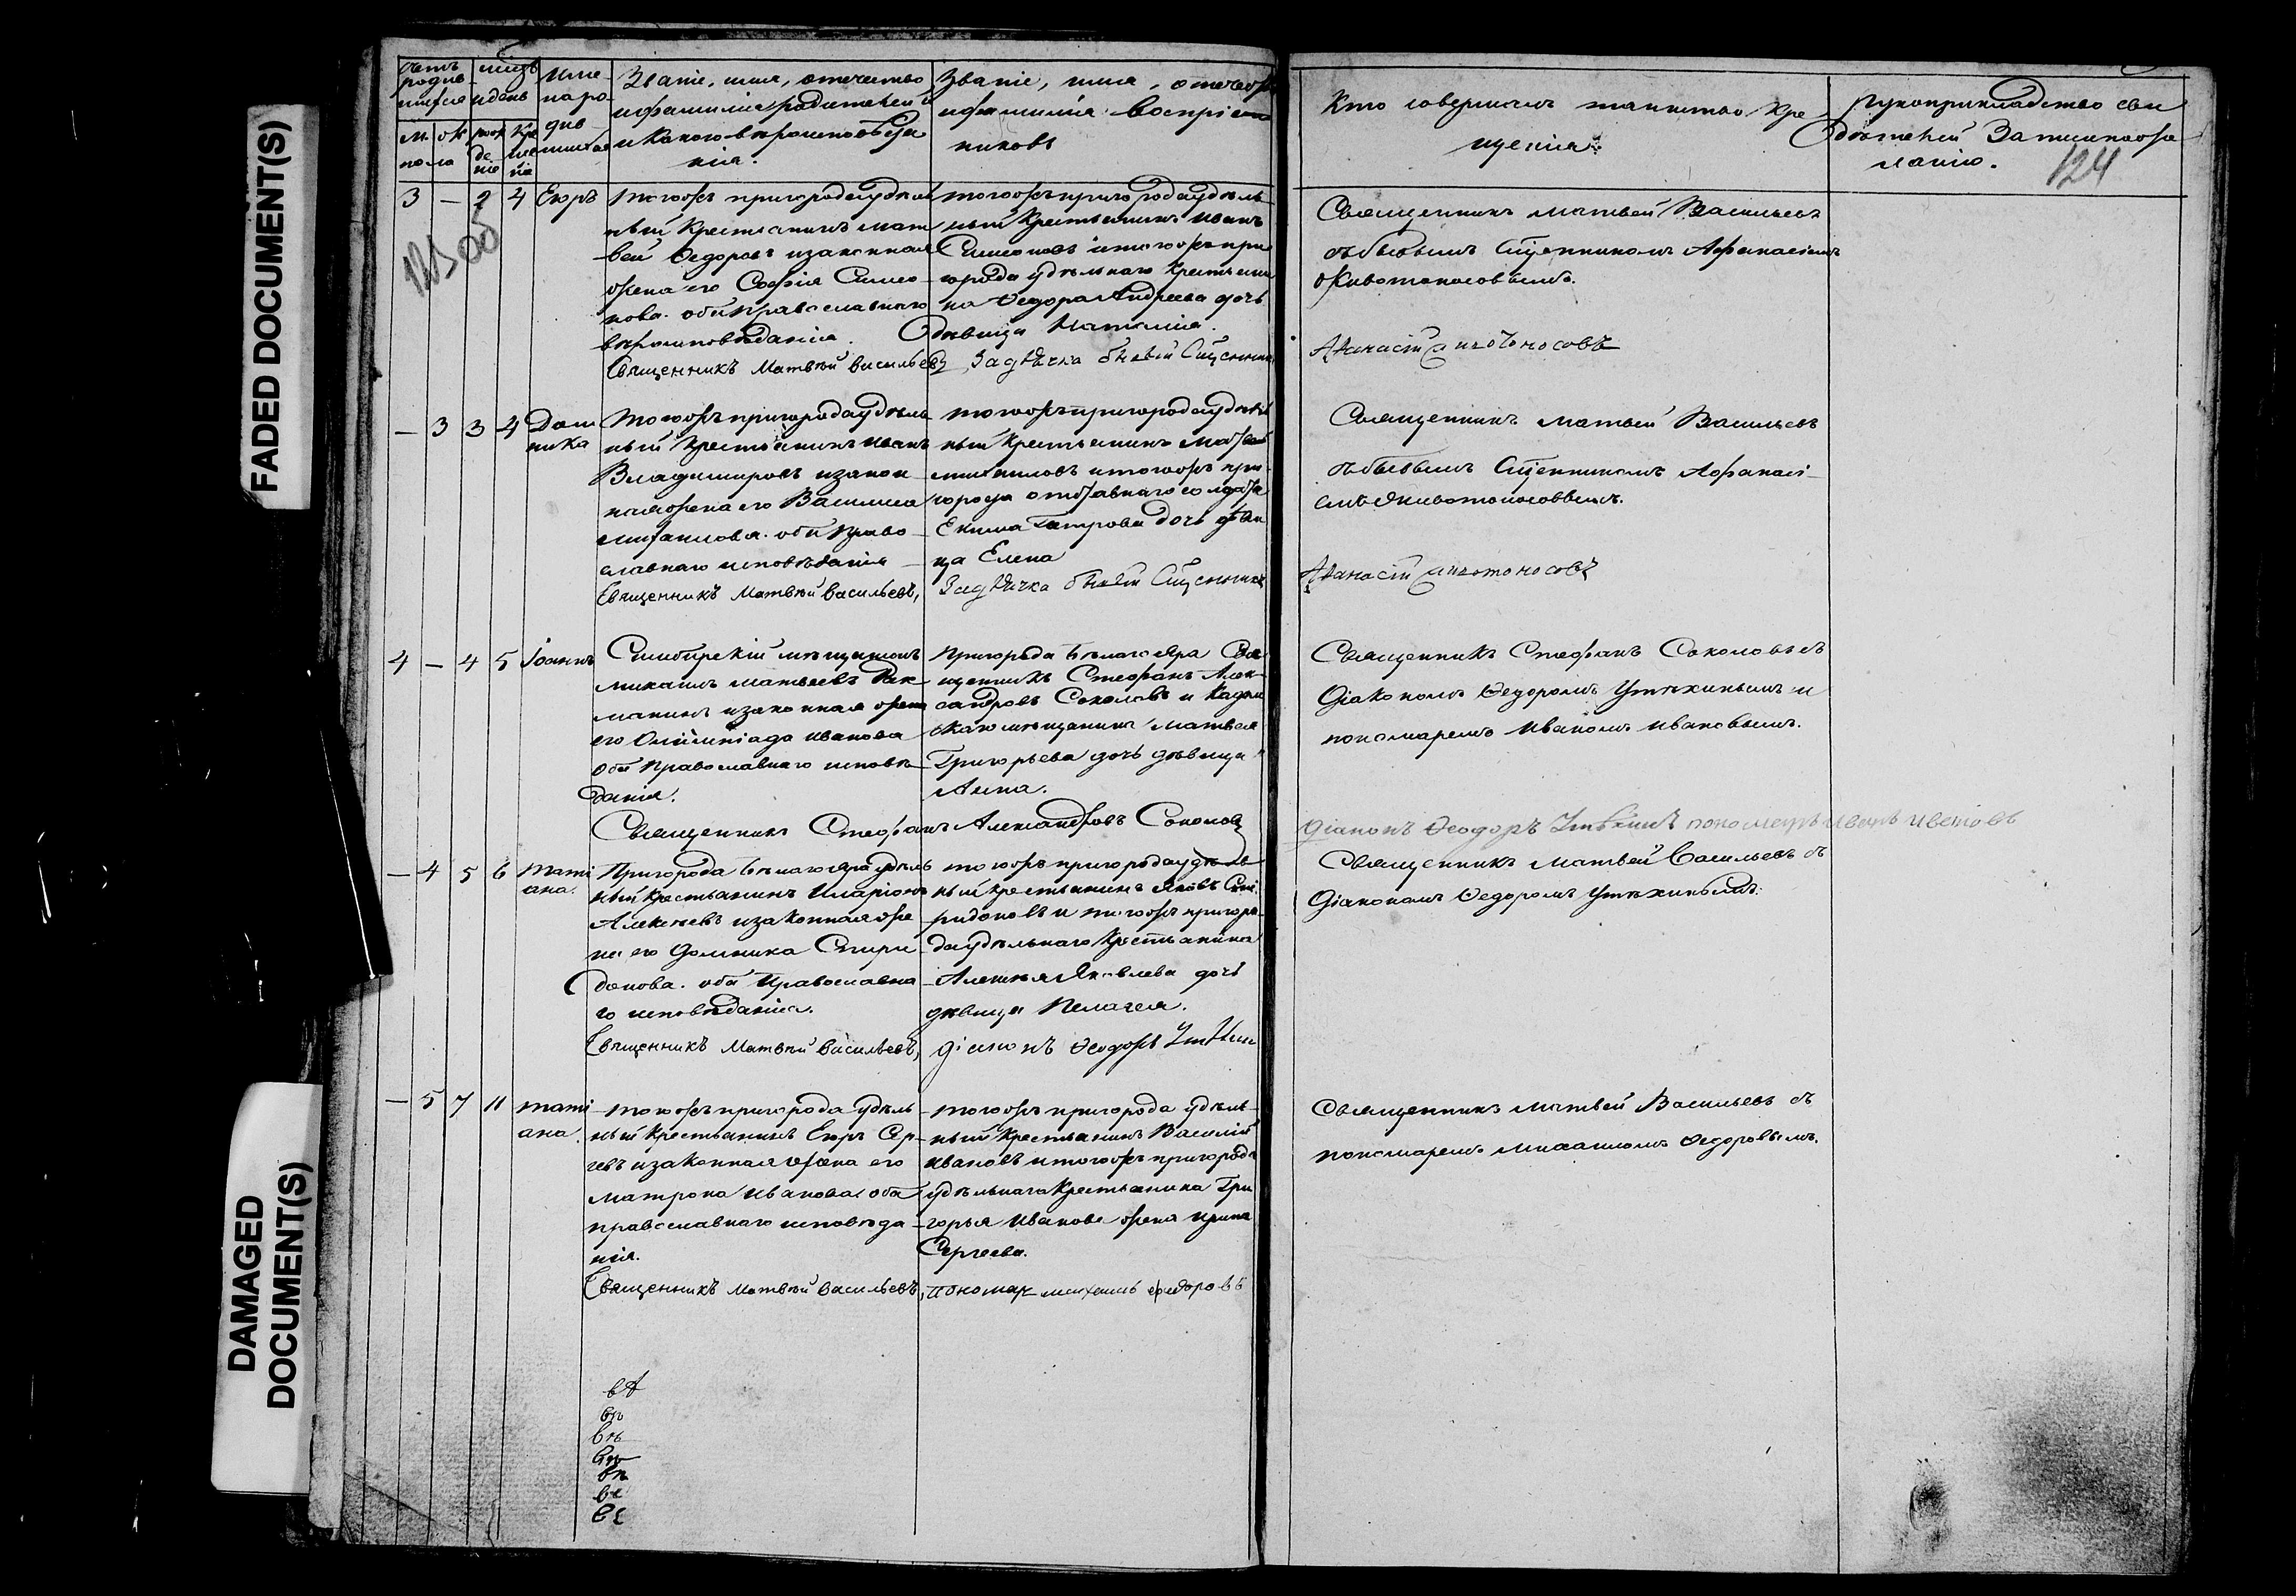 FADED DOCUMENT(S)
DAMAGED
DOCUMENT(S)
Счетъ
родив
шихся
мсцъ
и день
Име
на ро
див
шихся
Званіе, имя, отечество
и фамилія родителей и
и какого вѣроисповѣда
нія.
Званіе, имя, отечество
и фамилія воспріем
никовъ
Кто совершалъ таинство кре
щенія.
Рукоприкладство сви
дѣтелей Записи по же
ланію.
124
м. ж.
пола
рож
де
ніе
кре
ще
ніе
3 — 2 4 Егоръ
Тогожъ пригорода удѣль
ный Крестьянинъ Мат
вей Ѳедоровъ и законная
жена его Софія Симео
нова. оба Православнаго
вѣроисповѣданія.
Священникъ Матвѣй Васильевъ
тогожъ пригорода удѣль
ный Крестьянинъ Иванъ
Симеоновъ и тогожъ при
города удѣльнаго Крестьяни
на Ѳедора Андреева дочь
дѣвица Наталія.
За дьячка бывый Сщенникъ
Священникъ Матвей Васильевъ
съ бывымъ Сщенникомъ Афанасіемъ
Живононосовымъ.
— 3 3 4 Дом
ника
Тогожъ пригорода удѣль
ный Крестьянинъ Иванъ
Владимировъ и закон
ная жена его Василиса
Михаилова. оба Право
славнаго исповѣданія
Священникъ Матвѣй Васильевъ,
тогожъ пригорода удѣль
ный Крестьянинъ Матвей
Михаиловъ и тогожъ при
города отставнаго солдата
Екима Петрова дочь дѣви
ца Елена
За дьячка бывый Сщенникъ
Священникъ Матвей Васильевъ
съ бывымъ Сщенникомъ Афанасі
емъ
4 — 4 5 Іоаннъ
Симбирскій мѣщанинъ
Михаилъ Матвеевъ
и законная жена
его Олимпіада Иванова
Оба Православнаго исповѣ
данія.
Священникъ Стефанъ Александровъ Соколовъ
Пригорода Бѣлаго Яра Свя
щенникъ Стефанъ Алек
сандровъ Соколовъ и
мѣщанина Матвея
Григорьева дочь дѣвица
Анна.
Священникъ Стефанъ Соколовъ съ
Діакономъ Ѳедоромъ Утѣхинымъ и
пономаремъ Иваномъ Ивановымъ.
діаконъ Ѳеодоръ Утѣхинъ пономарь Иванъ Ивановъ
— 4 5 6 Тати
ана.
Пригорода Бѣлаго Яра удѣль
ный Крестьянинъ Иларіонъ
Алексеевъ и законная же
на его Домника Спири
донова. оба Православна
го исповѣданія.
Священникъ Матвѣй Васильевъ,
тогожъ пригорода удѣль
ный крестьянинъ Яковъ Спи
ридоновъ и тогожъ пригоро
да удѣльнаго Крестьянина
Алексѣя Яковлева дочь
дѣвица Пелагея.
діаконъ Ѳеодоръ Утѣхин
Священникъ Матвей Васильевъ съ
Діакономъ Ѳедоромъ Утѣхинымъ.
— 5 7 11 Тати
ана.
Тогожъ пригорода удѣль
ный Крестьянинъ Егоръ Сер
геевъ и законная жена его
Матрона Иванова оба
православнаго исповѣда
нія.
Священникъ Матвѣй Васильевъ,
тогожъ пригорода удѣль
ный Крестьянинъ Василій
Ивановъ и тогожъ пригорода
удѣльнаго Крестьянина Гри
горья Иванова жена Ирина
Сергеева.
пономар Михаилъ Федоровъ
Священникъ Матвей Васильевъ съ
пономаремъ Михаиломъ Ѳедоровымъ.